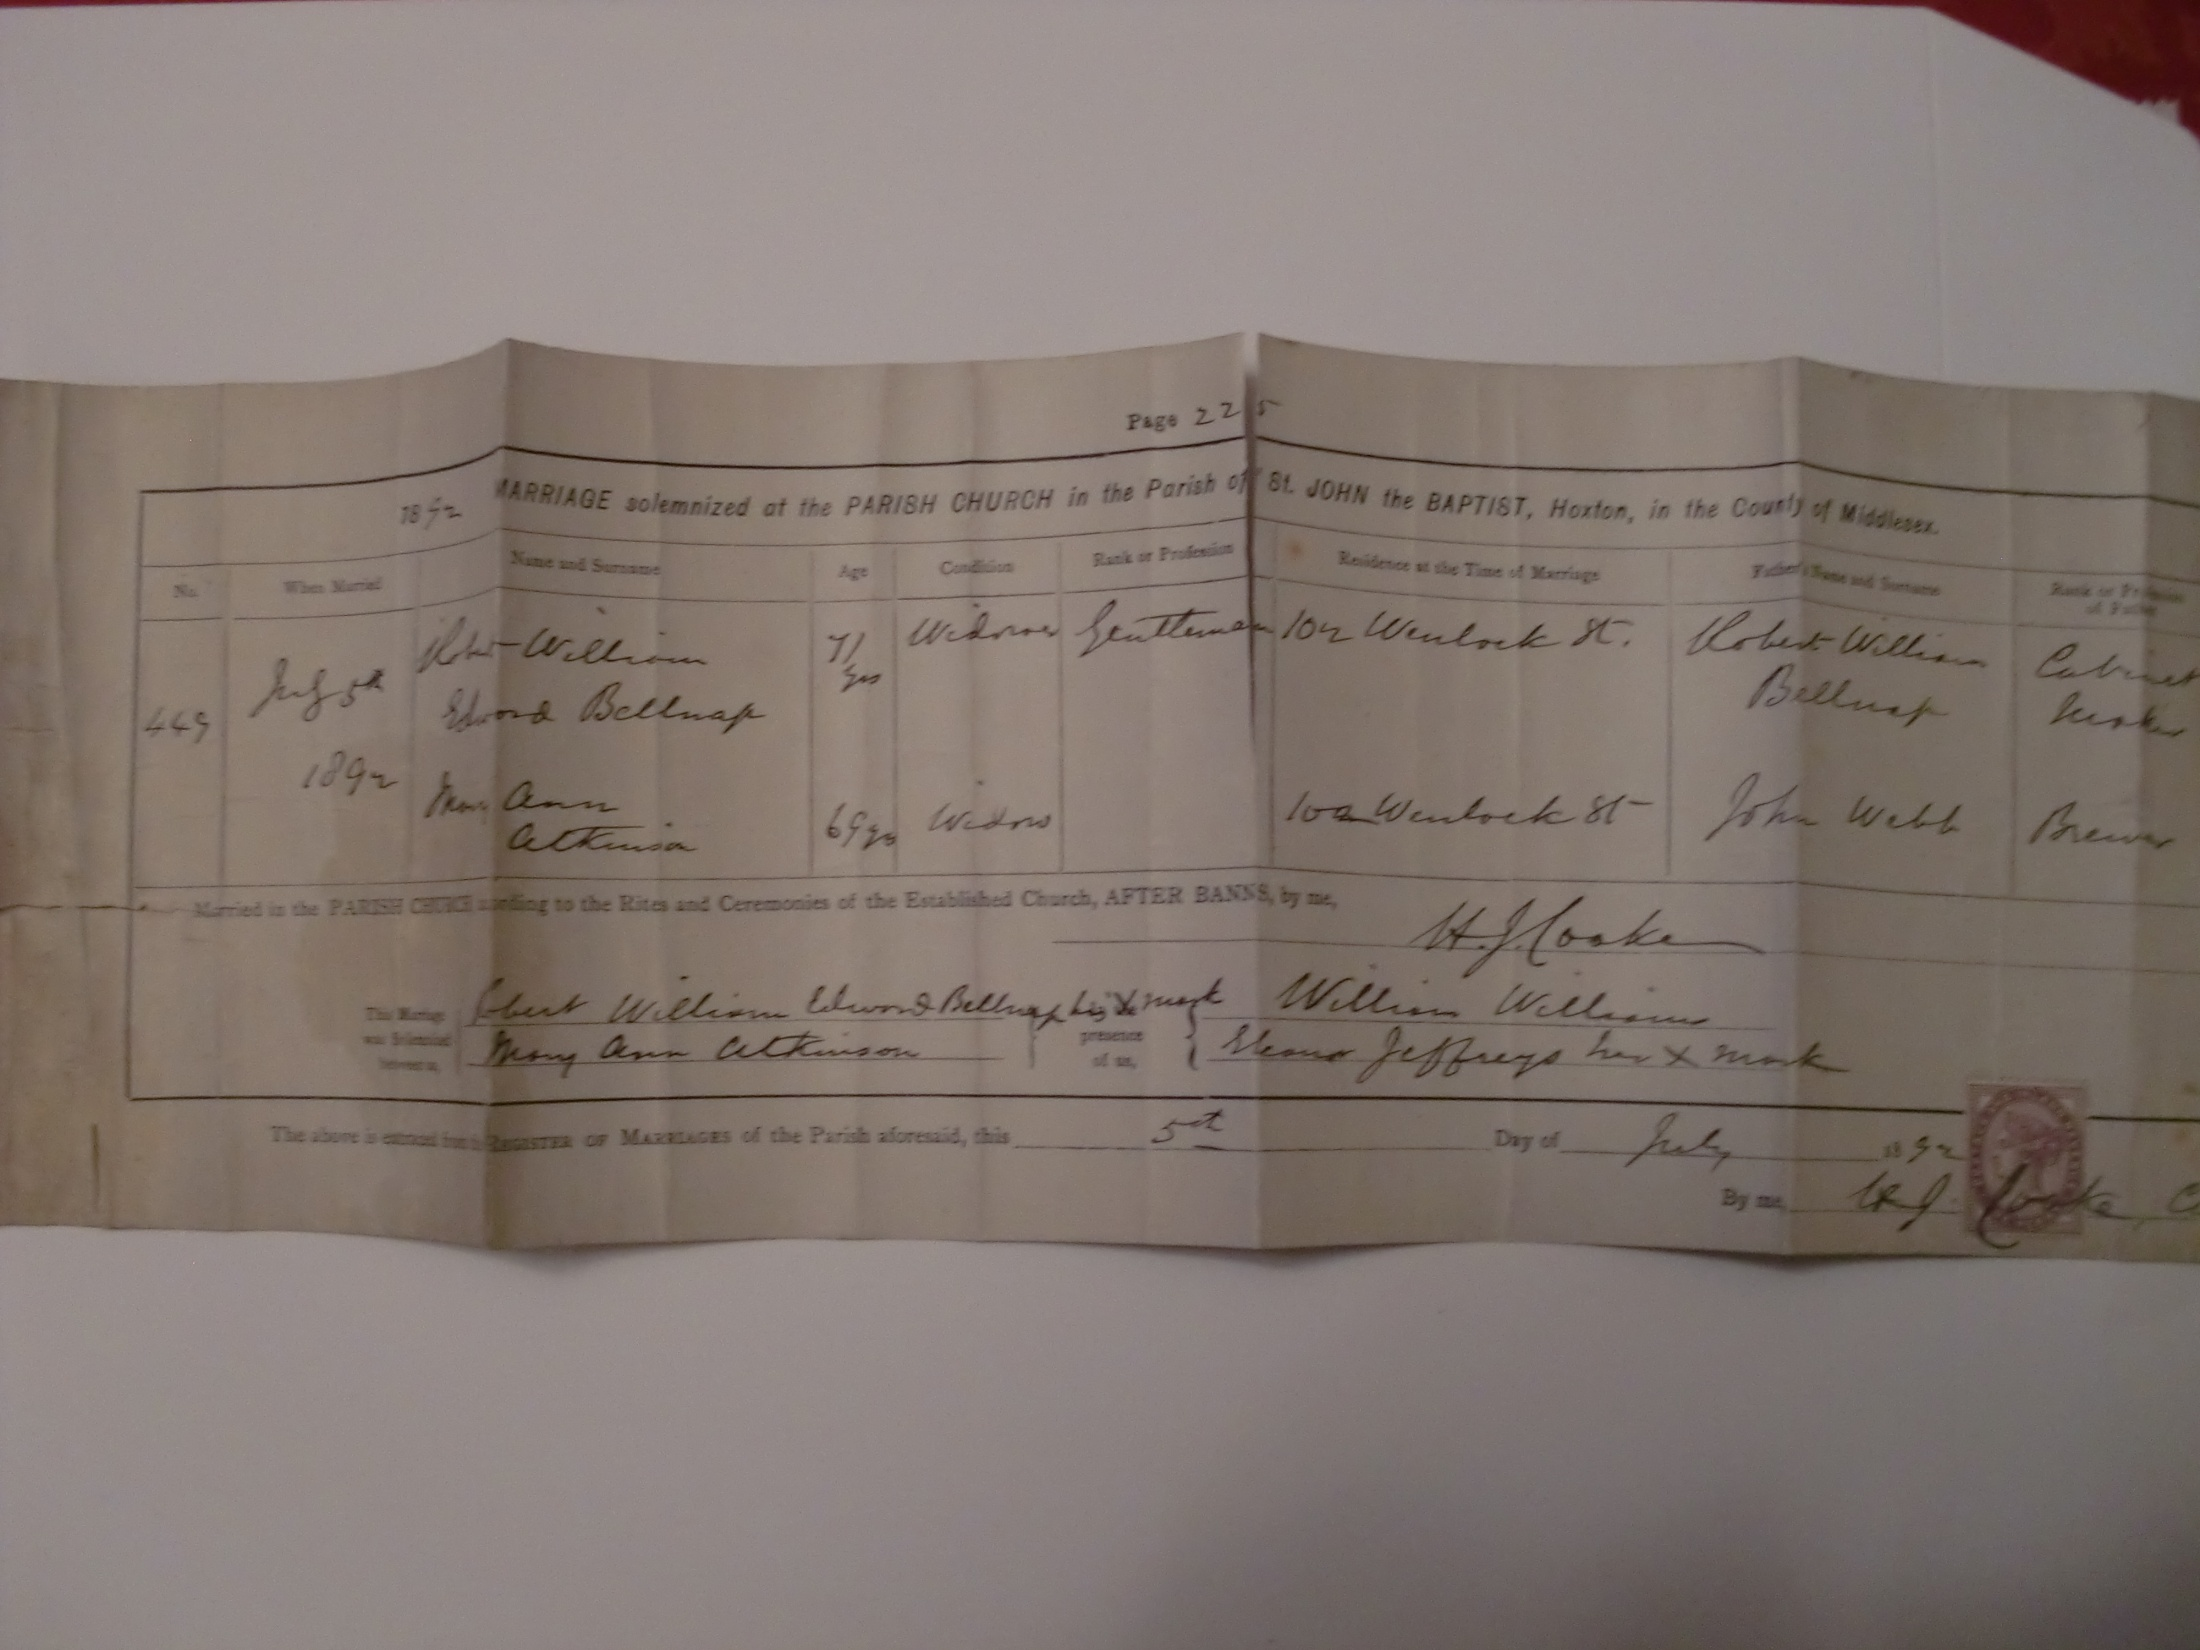 Page 225
1892 MARRIAGE solemnized at the PARISH CHURCH in the Parish of St. JOHN the BAPTIST, Hoxton, in the County of Middlesex.
No. When Married Name and Surname Age Condition Rank or Profession Residence at the Time of Marriage Father's Name and Surname Rank or Profession of Father
449 July 5th 1892
Robert William Edward Bellnap 71 yrs Widower Gentleman 102 Wenlock St. Robert William Bellnap Cabinet Maker
Mary Ann Atkinson 69 yrs Widow Wenlock St John Webb Brewer
Married in the PARISH CHURCH according to the Rites and Ceremonies of the Established Church, AFTER BANNS, by me,
H. J. Cooke
This Marriage was Solemnized between us,
Robert William Edward Bellnap his X mark
Mary Ann Atkinson
presence of us,
William Williams
Eleanor Jeffreys her X mark
The above is extracted from the REGISTER OF MARRIAGES of the Parish aforesaid, this 5th Day of July 1892
By me, H. J. Cooke, C